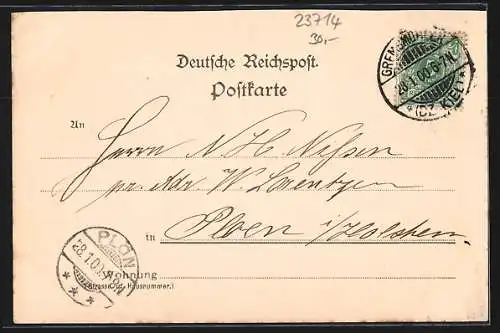 23714
30,-
GREMSMÜHLEN
28.1.00.6-7N.
* (BZ. KIEL) *
Deutsche Reichspost.
Postkarte
An
Herrn N. H. Nissen
pr. Adr. W. Lorentzen
in Ploen i/Holstein
PLÖN
28.1.00.
Wohnung
(Strasse und Hausnummer.)